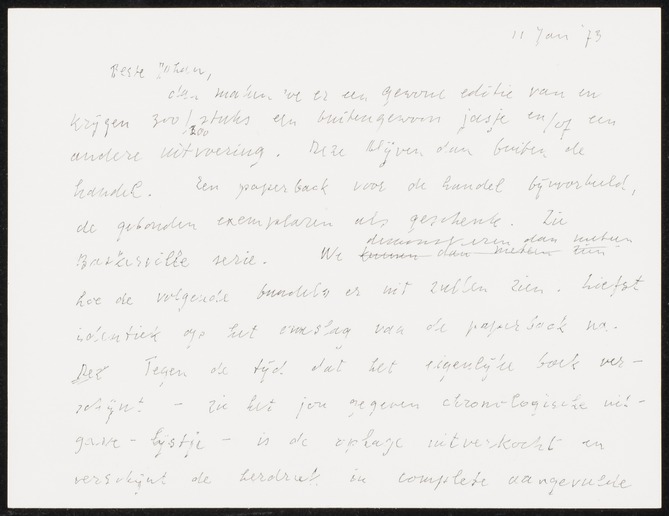 11 Jan '73
Beste Johan,
dan maken we er een gewone editie van en
krijgen 300/ stuks een buitengewoon jasje en/of een
200
andere uitvoering. Deze blijven dan buiten de
handel. Een paperback voor de handel bijvoorbeeld,
de gebonden exemplaren als geschenk. Zie
demonstreren dan meteen
Baskerville serie. We kunnen dan meteen zien
hoe de volgende bundels er uit zullen zien. Liefst
identiek op het omslag van de paperback na.
Dez Tegen de tijd dat het eigenlijke boek ver-
schijnt - zie het jou gegeven chronologische uit-
gave-lijstje - is de oplage uitverkocht en
verschijnt de herdruk in complete aangevulde